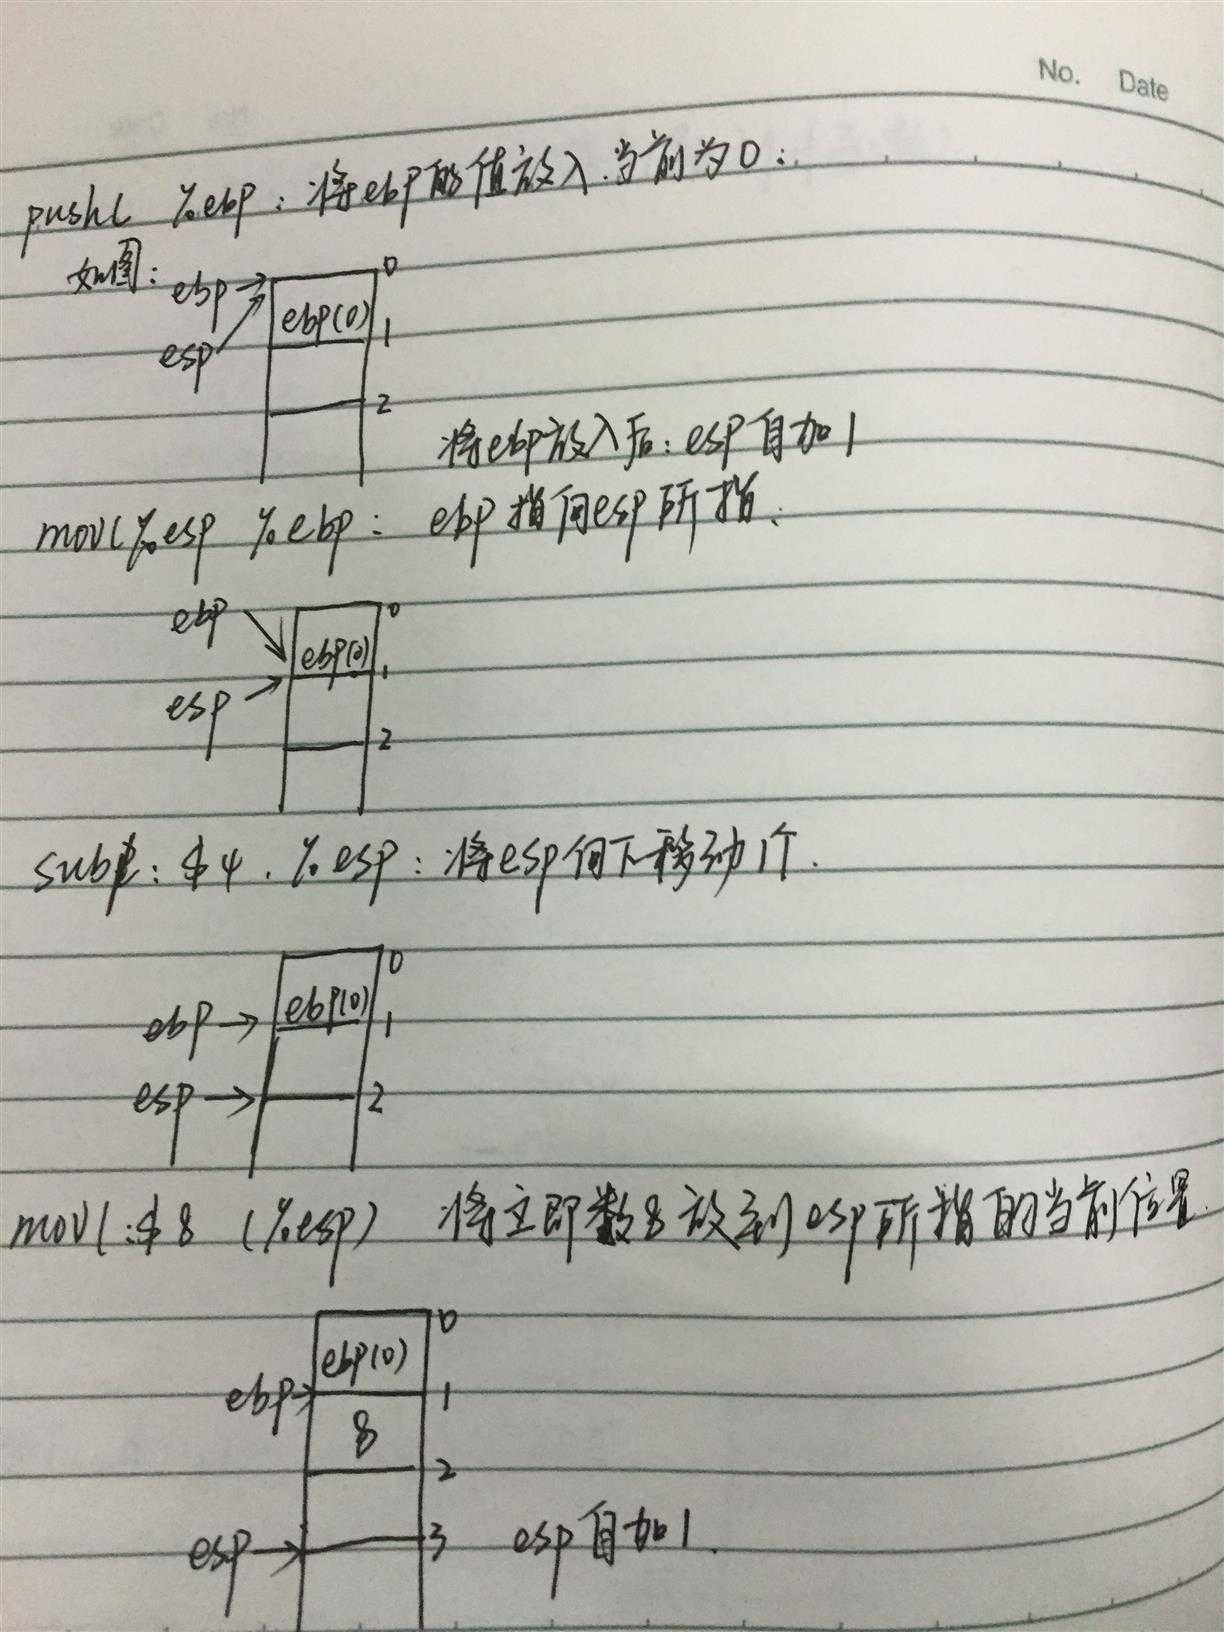 No. Date
pushl %ebp: 将ebp的值放入.当前为0:
如图:
ebp
0
ebp(0)
esp
1
2
将ebp放入后: esp自加1
movl %esp %ebp: ebp指向esp所指.
ebp
0
ebp(0)
esp
1
2
subl: $4. %esp: 将esp向下移动1个.
0
ebp(0)
ebp
1
esp
2
movl: $8 (%esp) 将立即数8放到esp所指的当前位置.
0
ebp(0)
ebp
1
8
2
esp
3
esp自加1.